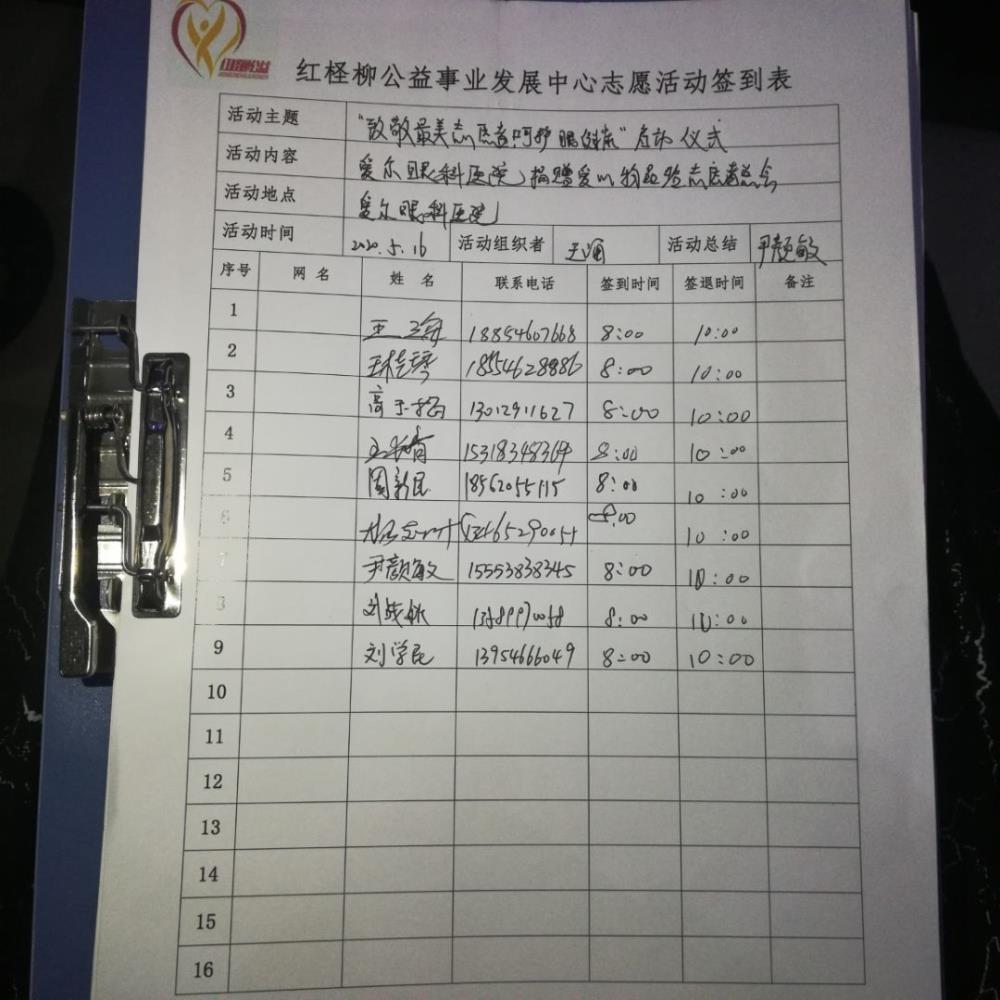 红柽柳公益
红柽柳公益事业发展中心志愿活动签到表
活动主题 "致敬最美志愿者呵护眼健康"启动仪式
活动内容 爱尔眼科医院捐赠爱心物品给志愿者总会
活动地点 爱尔眼科医院
活动时间 2020.5.16 活动组织者 王通 活动总结 尹颜敏
序号 网名 姓名 联系电话 签到时间 签退时间 备注
1 18854607668 8:00 10:00
2 18554628886 8:00 10:00
3 13012911627 8:00 10:00
4 15318348364 8:00 10:00
5 周新民 18562055115 8:00 10:00
6 8:00 10:00
7 尹颜敏 15553838345 8:00 10:00
8 8:00 10:00
9 刘学民 13954666049 8:00 10:00
10
11
12
13
14
15
16